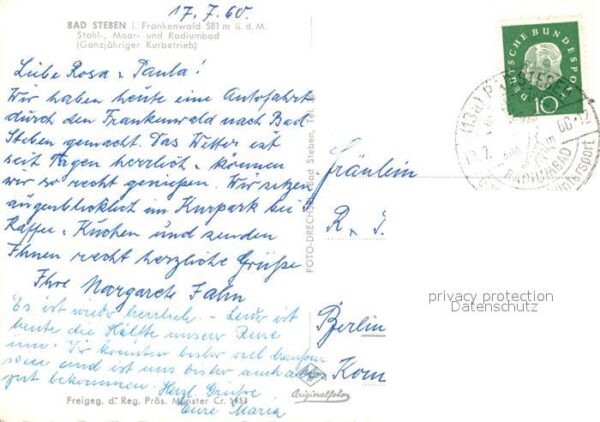 17.7.60.
BAD STEBEN i. Frankenwald 581 m ü. d. M.
Stahl-, Moor- und Radiumbad
(Ganzjähriger Kurbetrieb)
Liebe Rosa u. Paula!
Wir haben heute eine Autofahrt
durch den Frankenwald nach Bad
Steben gemacht. Das Wetter ist
seit Tagen herrlich, können
wir so recht genießen. Wir sitzen
augenblicklich im Kurpark bei
Kaffee u. Kuchen und senden
Ihnen recht herzliche Grüße
Ihre Margarete Fahn
Es ist wieder herrlich. Leider ist
heute die Hälfte unserer Reise
um. Wir konnten bisher viel draußen
sein und ist uns bisher auch
gut bekommen. Herzl. Grüße
Eure Maria
Freigeg. d. Reg. Präs. Münster Cr.
FOTO-DRECHSEL, Bad Steben, Tel.
Originalfoto
DEUTSCHE BUNDESPOST
10
(13a)
RADIUMBAD
Wintersport
Fräulein
R. J.
Berlin
privacy protection
Datenschutz